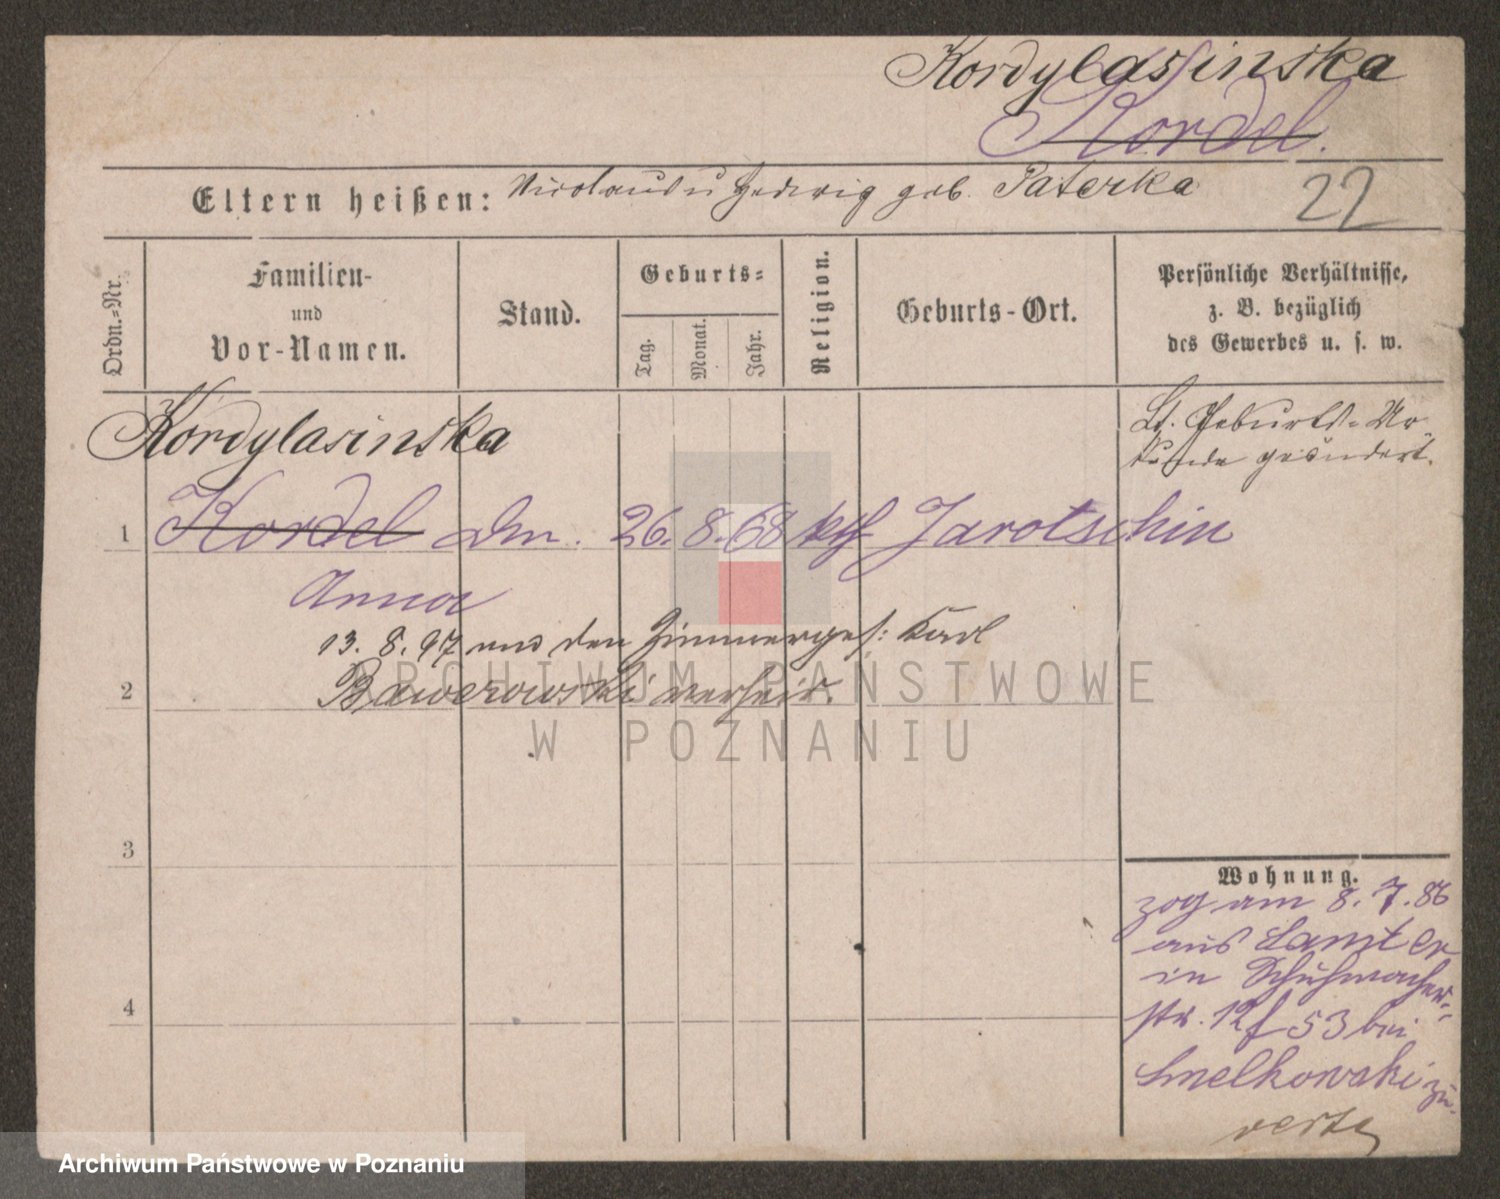 Kordylasinska
Kordel.
Eltern heißen: Nicolaus u Hedwig geb. Paterka
22
Ordn.-Nr.
Familien-
und
Vor-Namen.
Stand.
Geburts-
Tag.
Monat.
Jahr.
Religion.
Geburts-Ort.
Persönliche Verhältnisse,
z. B. bezüglich
des Gewerbes u. s. w.
Lt. Geburts-Ur-
kunde geändert.
Kordylasinska
1 Kordel Dm. 26. 8. 68 kth Jarotschin
Anna
13. 8. 97 mit den Zimmerges: Karl
2 Bawerowski verheir.
3
4
Wohnung.
zog am 8. 7. 86
aus Samter
in Schuhmacher-
str. 12 f 53 bei
Smelkowski zu.
verte
ARCHIWUM PAŃSTWOWE
W POZNANIU
Archiwum Państwowe w Poznaniu